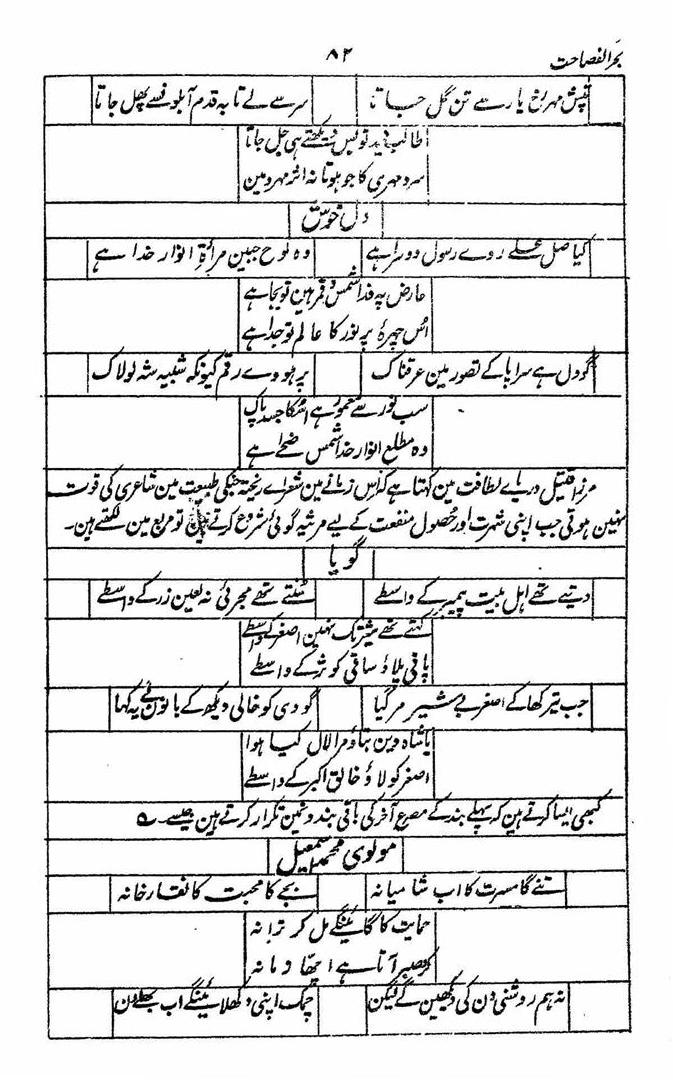 بحر الفصاحت
۸۲
تپش مہر رخ یار سے تن گل جاتا
سر سے لے تا بہ قدم آبلونسے پھل جاتا
طالب دید تو بس دیکھتے ہی جل جاتا
سرد مہری کا جو ہوتا نہ اثر مہرو مین
دل خوش
کیا صل علے روے رسول دوسرا ہے
وہ لوح جبین مرأۃ انوار خدا ہے
عارض پہ فدا شمس و قمر ہین تو بجا ہے
اُس چہرۂ پر نور کا عالم تو جدا ہے
گو دل ہے سراپا کے تصور مین عرقناک
پر ہووے رقم کیونکہ شبیہ شہ لولاک
سب نور سے معمور ہے اُسکا جسد پاک
وہ مطلع انوار خدا شمس ضحےٰ ہے
مرزا قتیل دریاے لطافت مین کہتا ہے کہ اس زمانے مین شعراے ریختہ جنکی طبیعت مین شاعری کی قوت
نہین ہوتی جب اپنی شہرت اور حصول منفعت کے لیے مرثیہ گوئی شروع کرتے ہین تو مربع مین لکھتے ہین۔
گویا
دیتے تھے اہل بیت پیمبر کے واسطے
سُنتے تھے مجرئی نہ لعین زر کے واسطے
کہتے تھے شہ تک نہین اصغر کے واسطے
پانی پلاؤ ساقی کوثر کے واسطے
جب تیر کھا کے اصغر بے شیر مر گیا
گودی کو خالی دیکھ کے بانو نے یہ کہا
یا شاہ دین بتاؤ مرا لال کیا ہوا
اصغر کو لاؤ خالق اکبر کے واسطے
کبھی ایسا کرتے ہین کہ پہلے بند کے مصرع آخر کی باقی بندونمین تکرار کرتے ہین جیسے ے
مولوی محمد اسمعیل
تنے گا مسرت کا اب شامیانہ
بجے گا محبت کا نقارخانہ
حمایت کا گائینگے مل کر ترانہ
کرو صبر آتا ہے اچھا زمانہ
نہ ہم روشنی دن کی دیکھین گے لیکن
چمک اپنی دکھلائینگے اب بھلے دن